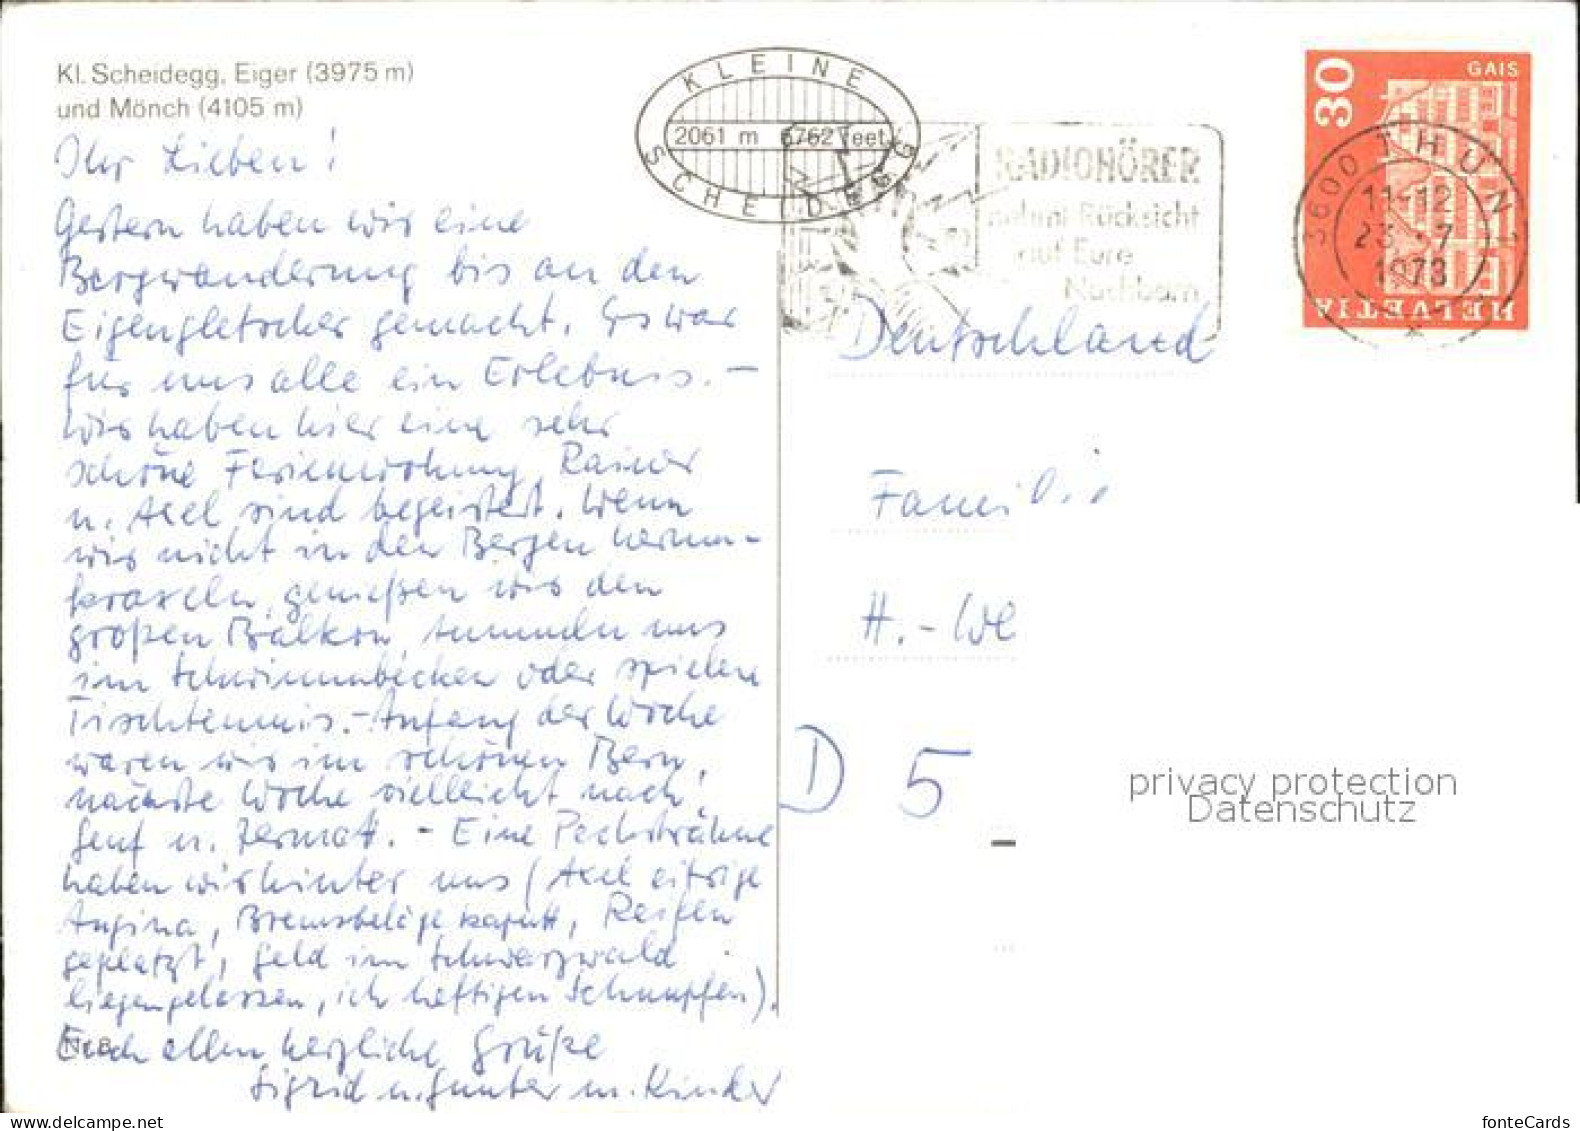 Kl. Scheidegg, Eiger (3975 m)
und Mönch (4105 m)
Ihr Lieben!
Gestern haben wir eine
Bergwanderung bis an den
Eigergletscher gemacht. Es war
für uns alle ein Erlebnis. –
Wir haben hier eine sehr
schöne Ferienwohnung, Rainer
u. Axel sind begeistert. Wenn
wir nicht in den Bergen herum-
kraxeln, genießen wir den
großen Balkon, tummeln uns
im Schwimmbecken oder spielen
Tischtennis. – Anfang der Woche
waren wir im schönen Bern,
nächste Woche vielleicht nach
Genf u. Zermatt. – Eine Pechsträhne
haben wir hinter uns (Axel eitrige
Angina, Bremsbeläge kaputt, Reifen
geplatzt, Geld im Schwarzwald
liegengelassen, ich heftigen Schnupfen).
Euch allen herzliche Grüße
Sigrid u. Gunter m. Kinder
KLEINE
2061 m 6762 feet
SCHEIDEGG
RADIOHÖRER
nehmt Rücksicht
auf Eure
Nachbarn
30
GAIS
HELVETIA
3600 THUN 1
11-12
23.-7
1973
Deutschland
Familie
H.-We
D 5
privacy protection
Datenschutz
fonteCards